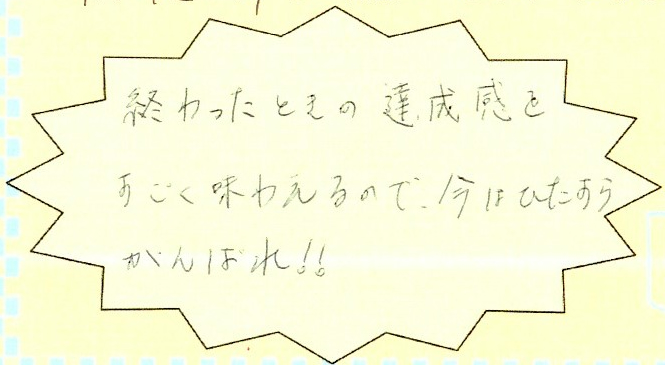 終わったときの達成感を
すごく味わえるので、今はひたすら
がんばれ!!